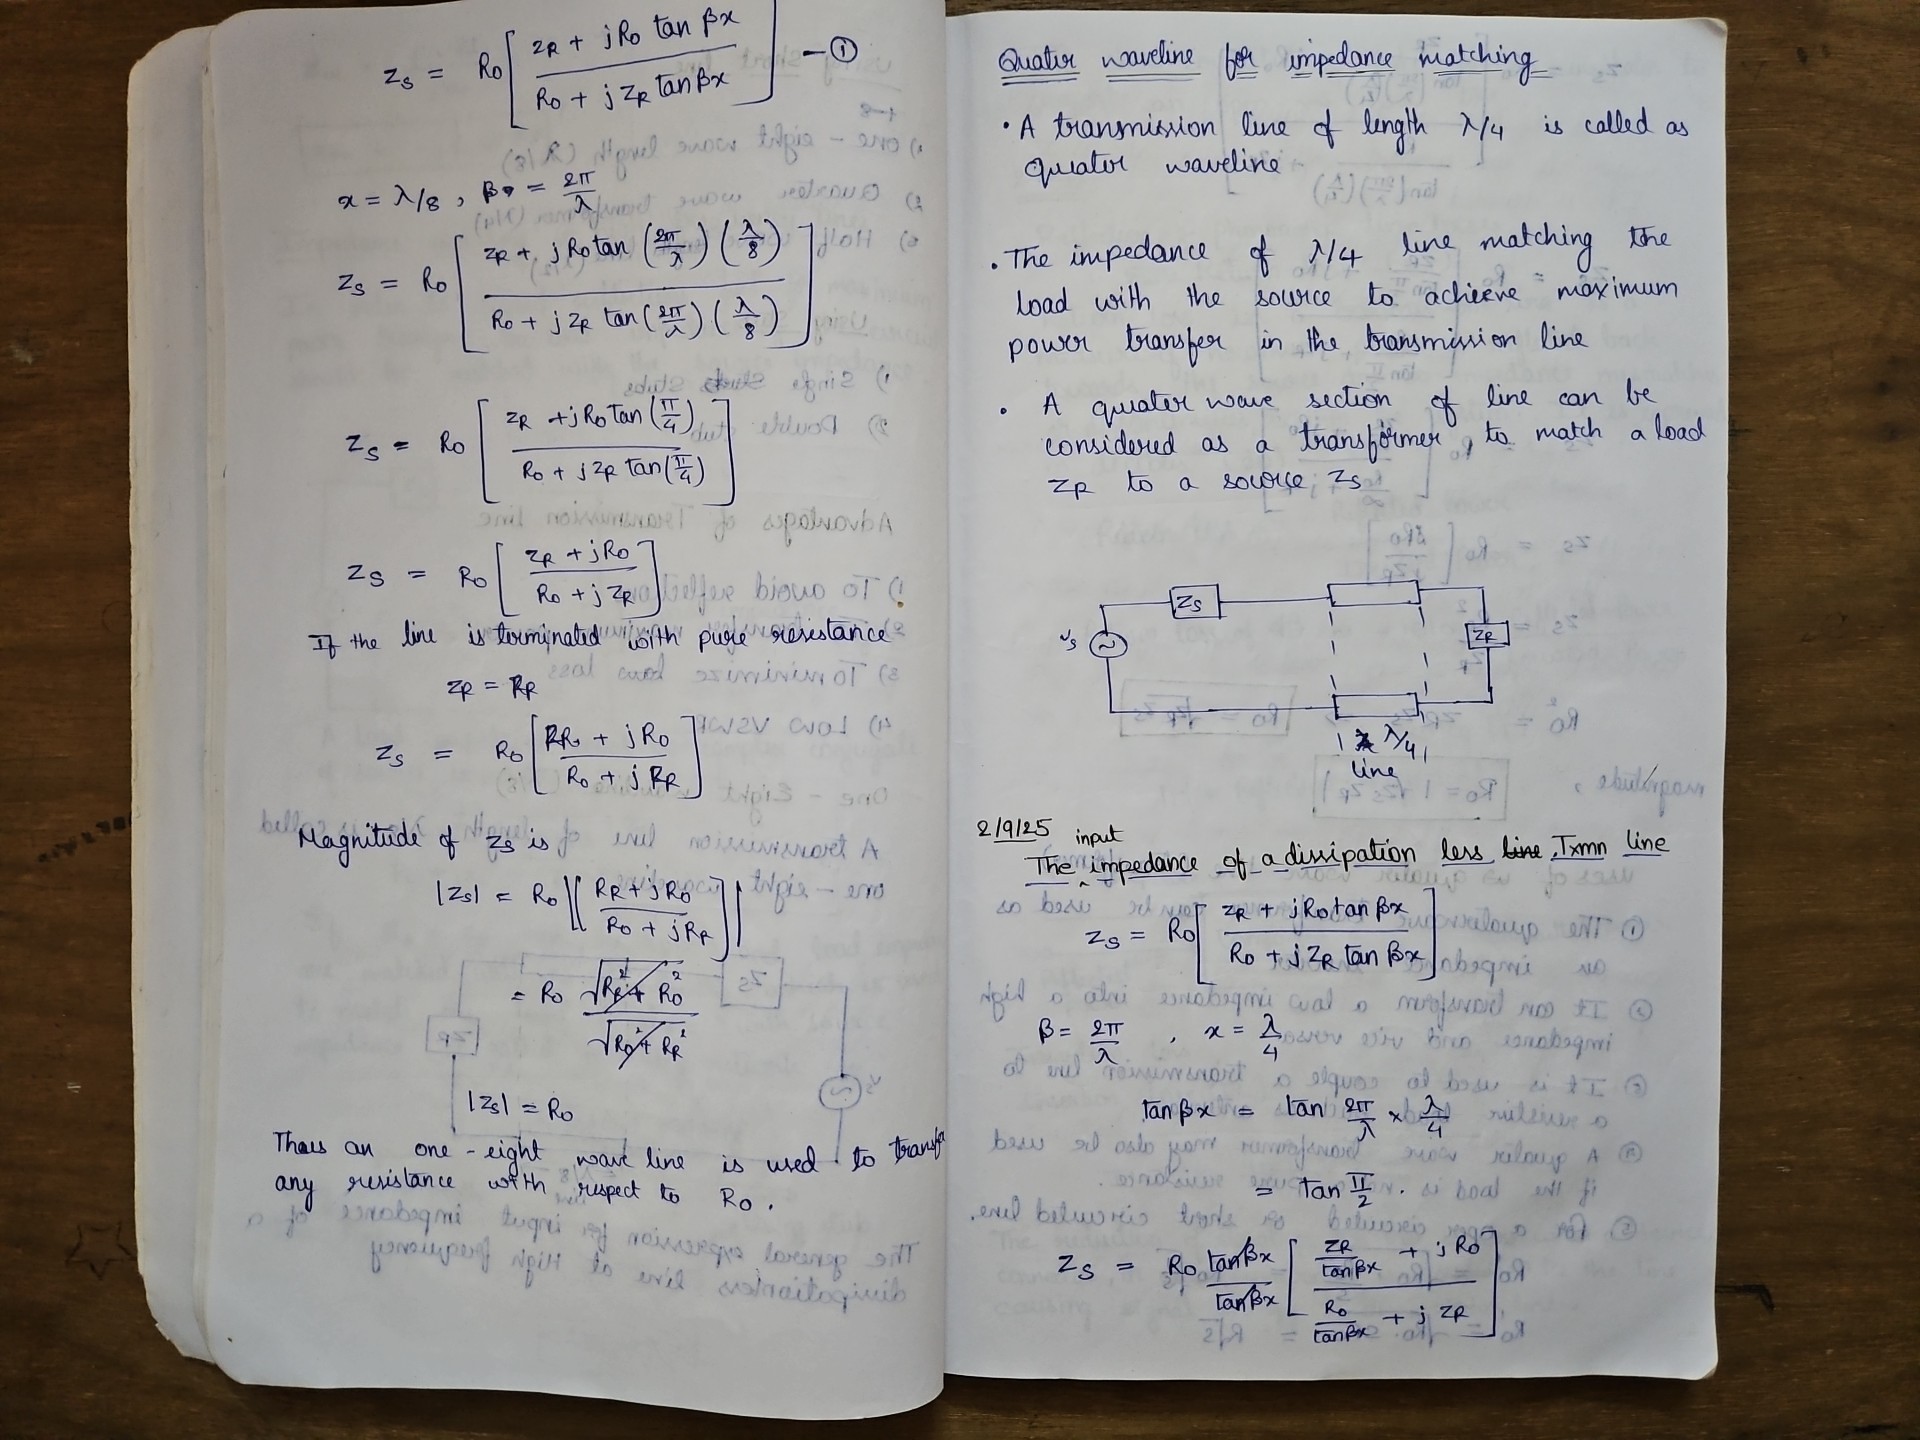 Zs = Ro [ ZR + jRo tan βx / Ro + j ZR tan βx ] — ①
x = λ/8 , β = 2π/λ
Zs = Ro [ ZR + jRo tan (2π/λ) (λ/8) / Ro + j ZR tan (2π/λ) (λ/8) ]
Zs = Ro [ ZR + jRo tan (π/4) / Ro + j ZR tan (π/4) ]
Zs = Ro [ ZR + jRo / Ro + j ZR ]
If the line is terminated with pure resistance
ZR = RR
Zs = Ro [ RR + jRo / Ro + j RR ]
Magnitude of Zs is
|Zs| = Ro |[ RR + jRo / Ro + jRR ]|
= Ro √RR² + Ro² / √Ro² + RR²
|Zs| = Ro
Thus an one - eight wave line is used to transfo
any resistance with respect to Ro.
Quater waveline for impedance matching
• A transmission line of length λ/4 is called as
quater waveline
• The impedance of λ/4 line matching the
load with the source to achieve maximum
power transfer in the transmission line
• A quater wave section of line can be
considered as a transformer, to match a load
ZR to a source Zs
Zs
Vs
ZR
λ/4
line
2/9/25
The input impedance of a dissipation less line Txmn line
Zs = Ro [ ZR + jRo tan βx / Ro + j ZR tan βx ]
β = 2π/λ , x = λ/4
tan βx = tan 2π/λ × λ/4
= tan π/2 .
Zs = Ro tan βx / tan βx [ ZR/tan βx + j Ro / Ro/tan βx + j ZR ]